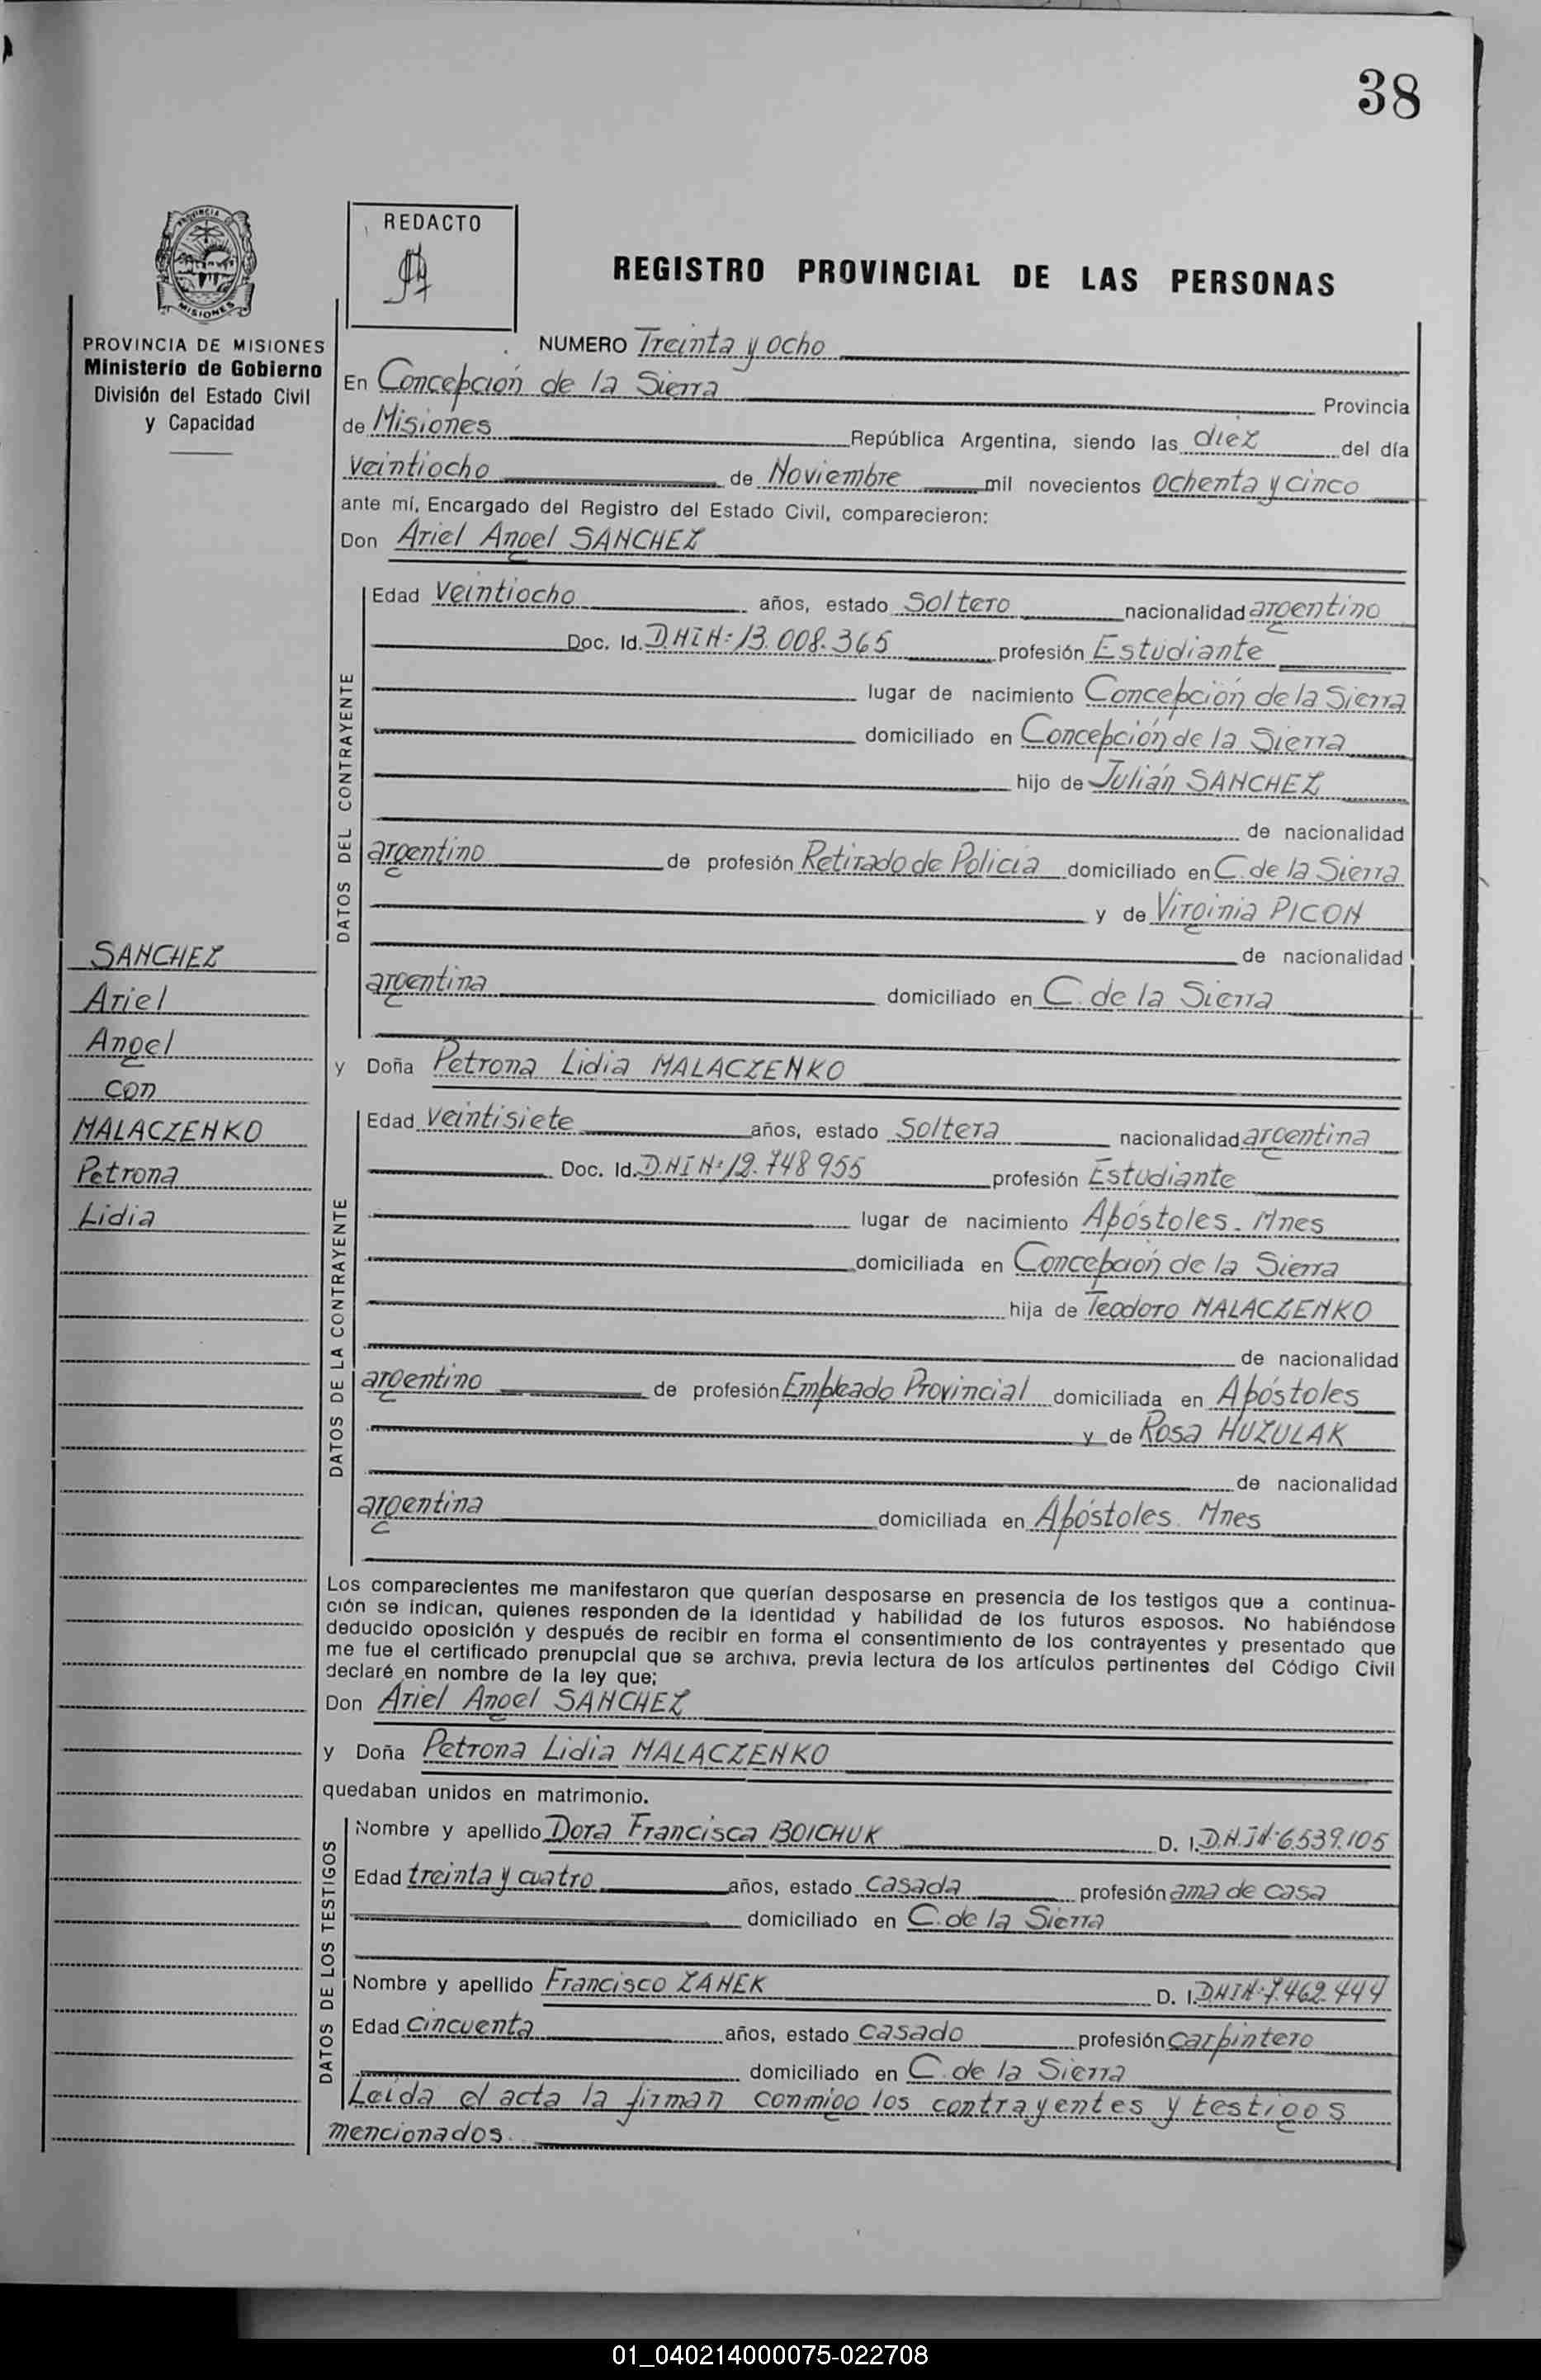 38
PROVINCIA DE
MISIONES
REDACTO
REGISTRO PROVINCIAL DE LAS PERSONAS
PROVINCIA DE MISIONES
Ministerio de Gobierno
División del Estado Civil
y Capacidad
NUMERO Treinta y ocho
En Concepción de la Sierra Provincia
de Misiones República Argentina, siendo las diez del día
veintiocho de Noviembre mil novecientos ochenta y cinco
ante mí, Encargado del Registro del Estado Civil, comparecieron:
Don Ariel Angel SANCHEZ
DATOS DEL CONTRAYENTE
Edad veintiocho años, estado soltero nacionalidad argentino
Doc. Id. D.N.I Nº 13.008.365 profesión Estudiante
lugar de nacimiento Concepción de la Sierra
domiciliado en Concepción de la Sierra
hijo de Julián SANCHEZ
de nacionalidad
argentino de profesión Retirado de Policia domiciliado en C. de la Sierra
y de Virginia PICON
de nacionalidad
argentina domiciliado en C. de la Sierra
SANCHEZ
Ariel
Angel
con
MALACZENKO
Petrona
Lidia
y Doña Petrona Lidia MALACZENKO
DATOS DE LA CONTRAYENTE
Edad veintisiete años, estado soltera nacionalidad argentina
Doc. Id. D.N.I Nº 12.748955 profesión Estudiante
lugar de nacimiento Apóstoles. Mnes
domiciliada en Concepción de la Sierra
hija de Teodoro MALACZENKO
de nacionalidad
argentino de profesión Empleado Provincial domiciliada en Apóstoles
y de Rosa HUZULAK
de nacionalidad
argentina domiciliada en Apóstoles. Mnes
Los comparecientes me manifestaron que querían desposarse en presencia de los testigos que a continua-
ción se indican, quienes responden de la identidad y habilidad de los futuros esposos. No habiéndose
deducido oposición y después de recibir en forma el consentimiento de los contrayentes y presentado que
me fue el certificado prenupcial que se archiva, previa lectura de los artículos pertinentes del Código Civil
declaré en nombre de la ley que;
Don Ariel Angel SANCHEZ
y Doña Petrona Lidia MALACZENKO
quedaban unidos en matrimonio.
DATOS DE LOS TESTIGOS
Nombre y apellido Dora Francisca BOICHUK D. I. D.N.I Nº 6.539.105
Edad treinta y cuatro años, estado casada profesión ama de casa
domiciliado en C. de la Sierra
Nombre y apellido Francisco ZANEK D. I. DNI Nº 7.462.444
Edad cincuenta años, estado casado profesión carpintero
domiciliado en C. de la Sierra
Leida el acta la firman conmigo los contrayentes y testigos
mencionados.
01_040214000075-022708